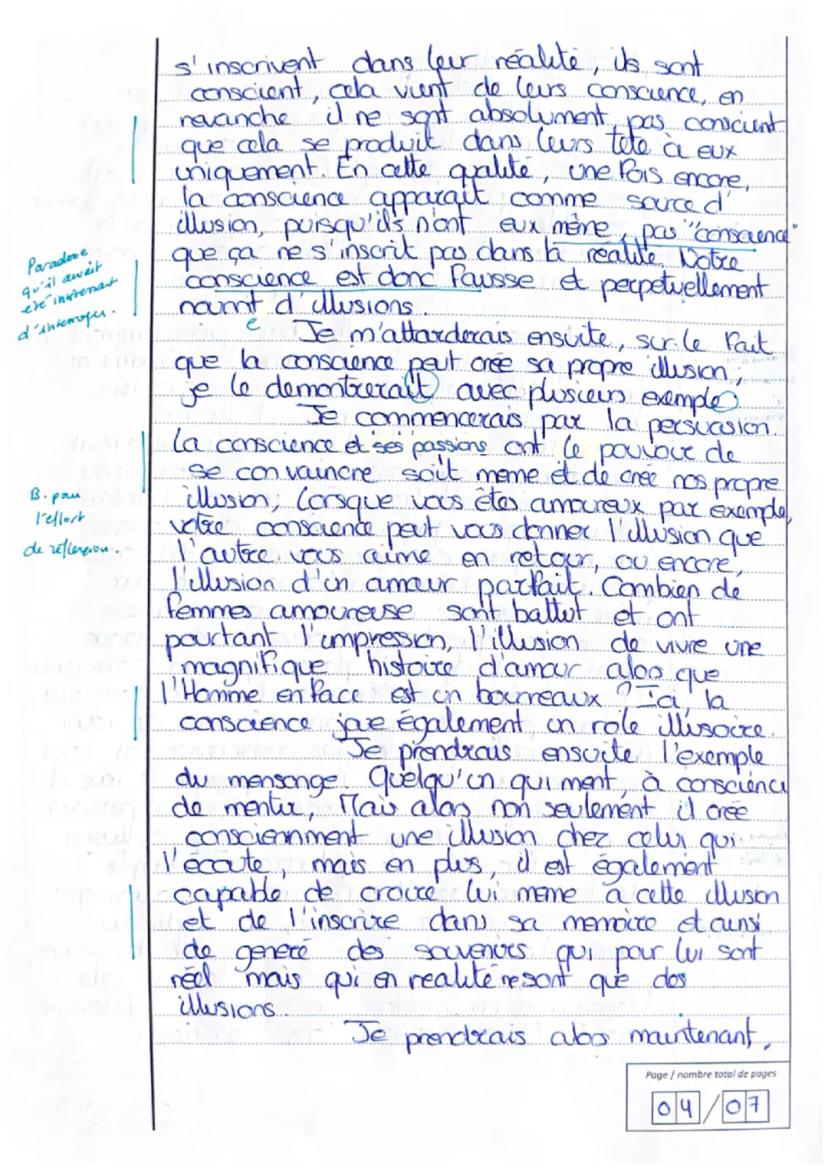 s'inscrivent dans leur réalité, ils sont
conscient, cela vient de leurs conscience, en
revanche il ne sont absolument pas conscient
que cela se produit dans leurs tete à eux
uniquement. En cette qualité, une fois encore,
la conscience apparait comme source d'
illusion, puisqu'ils n'ont eux même pas "conscience"
que ça ne s'inscrit pas dans la réalité. Notre
conscience est donc fausse et perpetuellement
nourrit d'illusions.
Paradoxe
qu'il aurait
été intéressant
d'interroger.
Je m'attarderais ensuite, sur le fait
que la conscience peut crée sa propre illusion,
e
je le demontrerait avec plusieurs exemple
Je commencerais par la persuasion.
La conscience et ses passions ont le pouvoir de
se convaincre soit meme et de crée nos propre
illusion, lorsque vous êtes amoureux par exemple,
votre conscience peut vous donner l'illusion que
l'autre vous aime en retour, ou encore,
l'illusion d'un amour parfait. Combien de
femmes amoureuse sont battut et ont
pourtant l'impression, l'illusion de vivre une
magnifique histoire d'amour alos que
l'Homme en face est un bourreaux ? Ici, la
conscience joue également un role illusoire.
B. pour
l'effort
de réflexion
Je prendrais ensuite l'exemple
du mensonge. Quelqu'un qui ment, à conscience
de mentir, Mais alos non seulement il crée
consciennment une illusion chez celui qui
l'écoute, mais en plus, il est également
capable de croire lui meme à cette illusion
et de l'inscrire dans sa memoire et ainsi
de generé des souvenirs qui pour lui sont
réel mais qui en realité ne sont que des
illusions.
Je prendrais alos maintenant,
Page / nombre total de pages
04/07